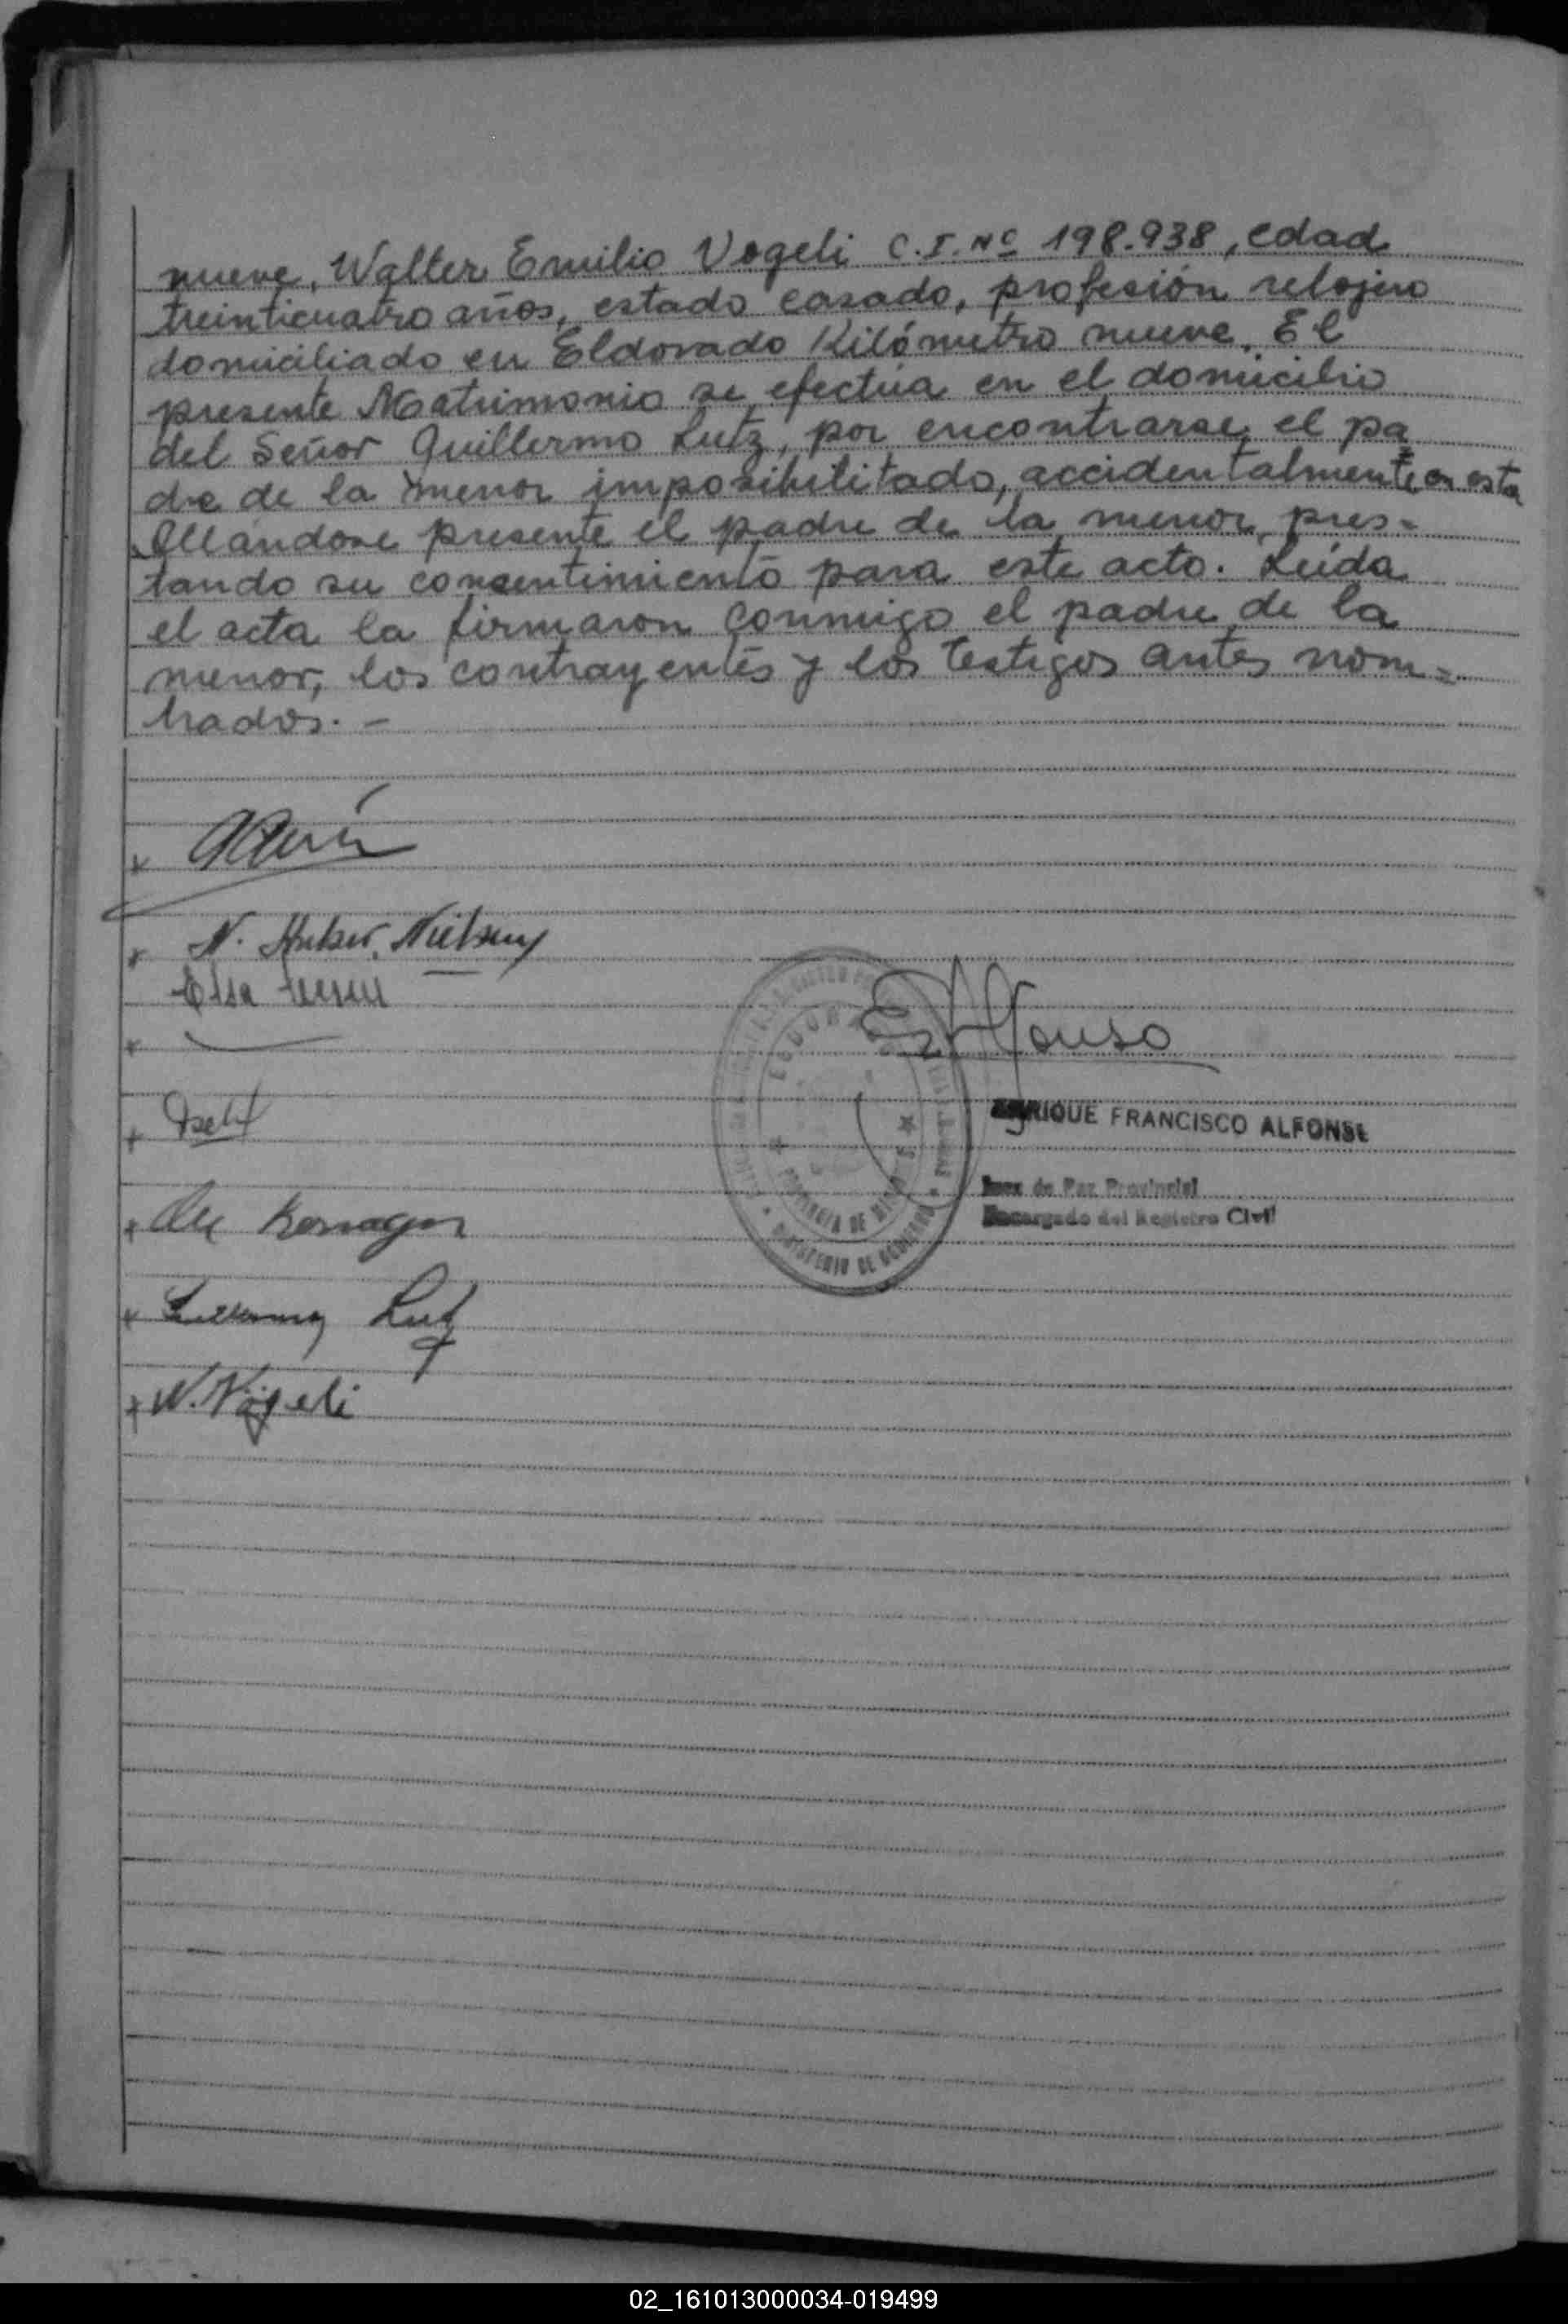 nueve, Walter Emilio Vogeli C.I. Nº 198.938, edad
treinticuatro años, estado casado, profesión relojero
domiciliado en Eldorado Kilómetro nueve. El
presente Matrimonio se efectúa en el domicilio
del Señor Guillermo Lutz, por encontrarse el pa
dre de la menor imposibilitado, accidentalmente en esta
allandose presente el padre de la menor, pres=
tando su consentimiento para este acto. Leída
el acta la firmaron conmigo el padre de la
menor, los contrayentes y los testigos antes nom=
brados. -
N. Huber Nielsen
Elsa
Alfonso
ENRIQUE FRANCISCO ALFONSO
Juez de Paz Provincial
Encargado del Registro Civil
ELDORADO
PROVINCIA DE MISIONES
MINISTERIO DE GOBIERNO
Lutz
W. Vögeli
02_161013000034-019499